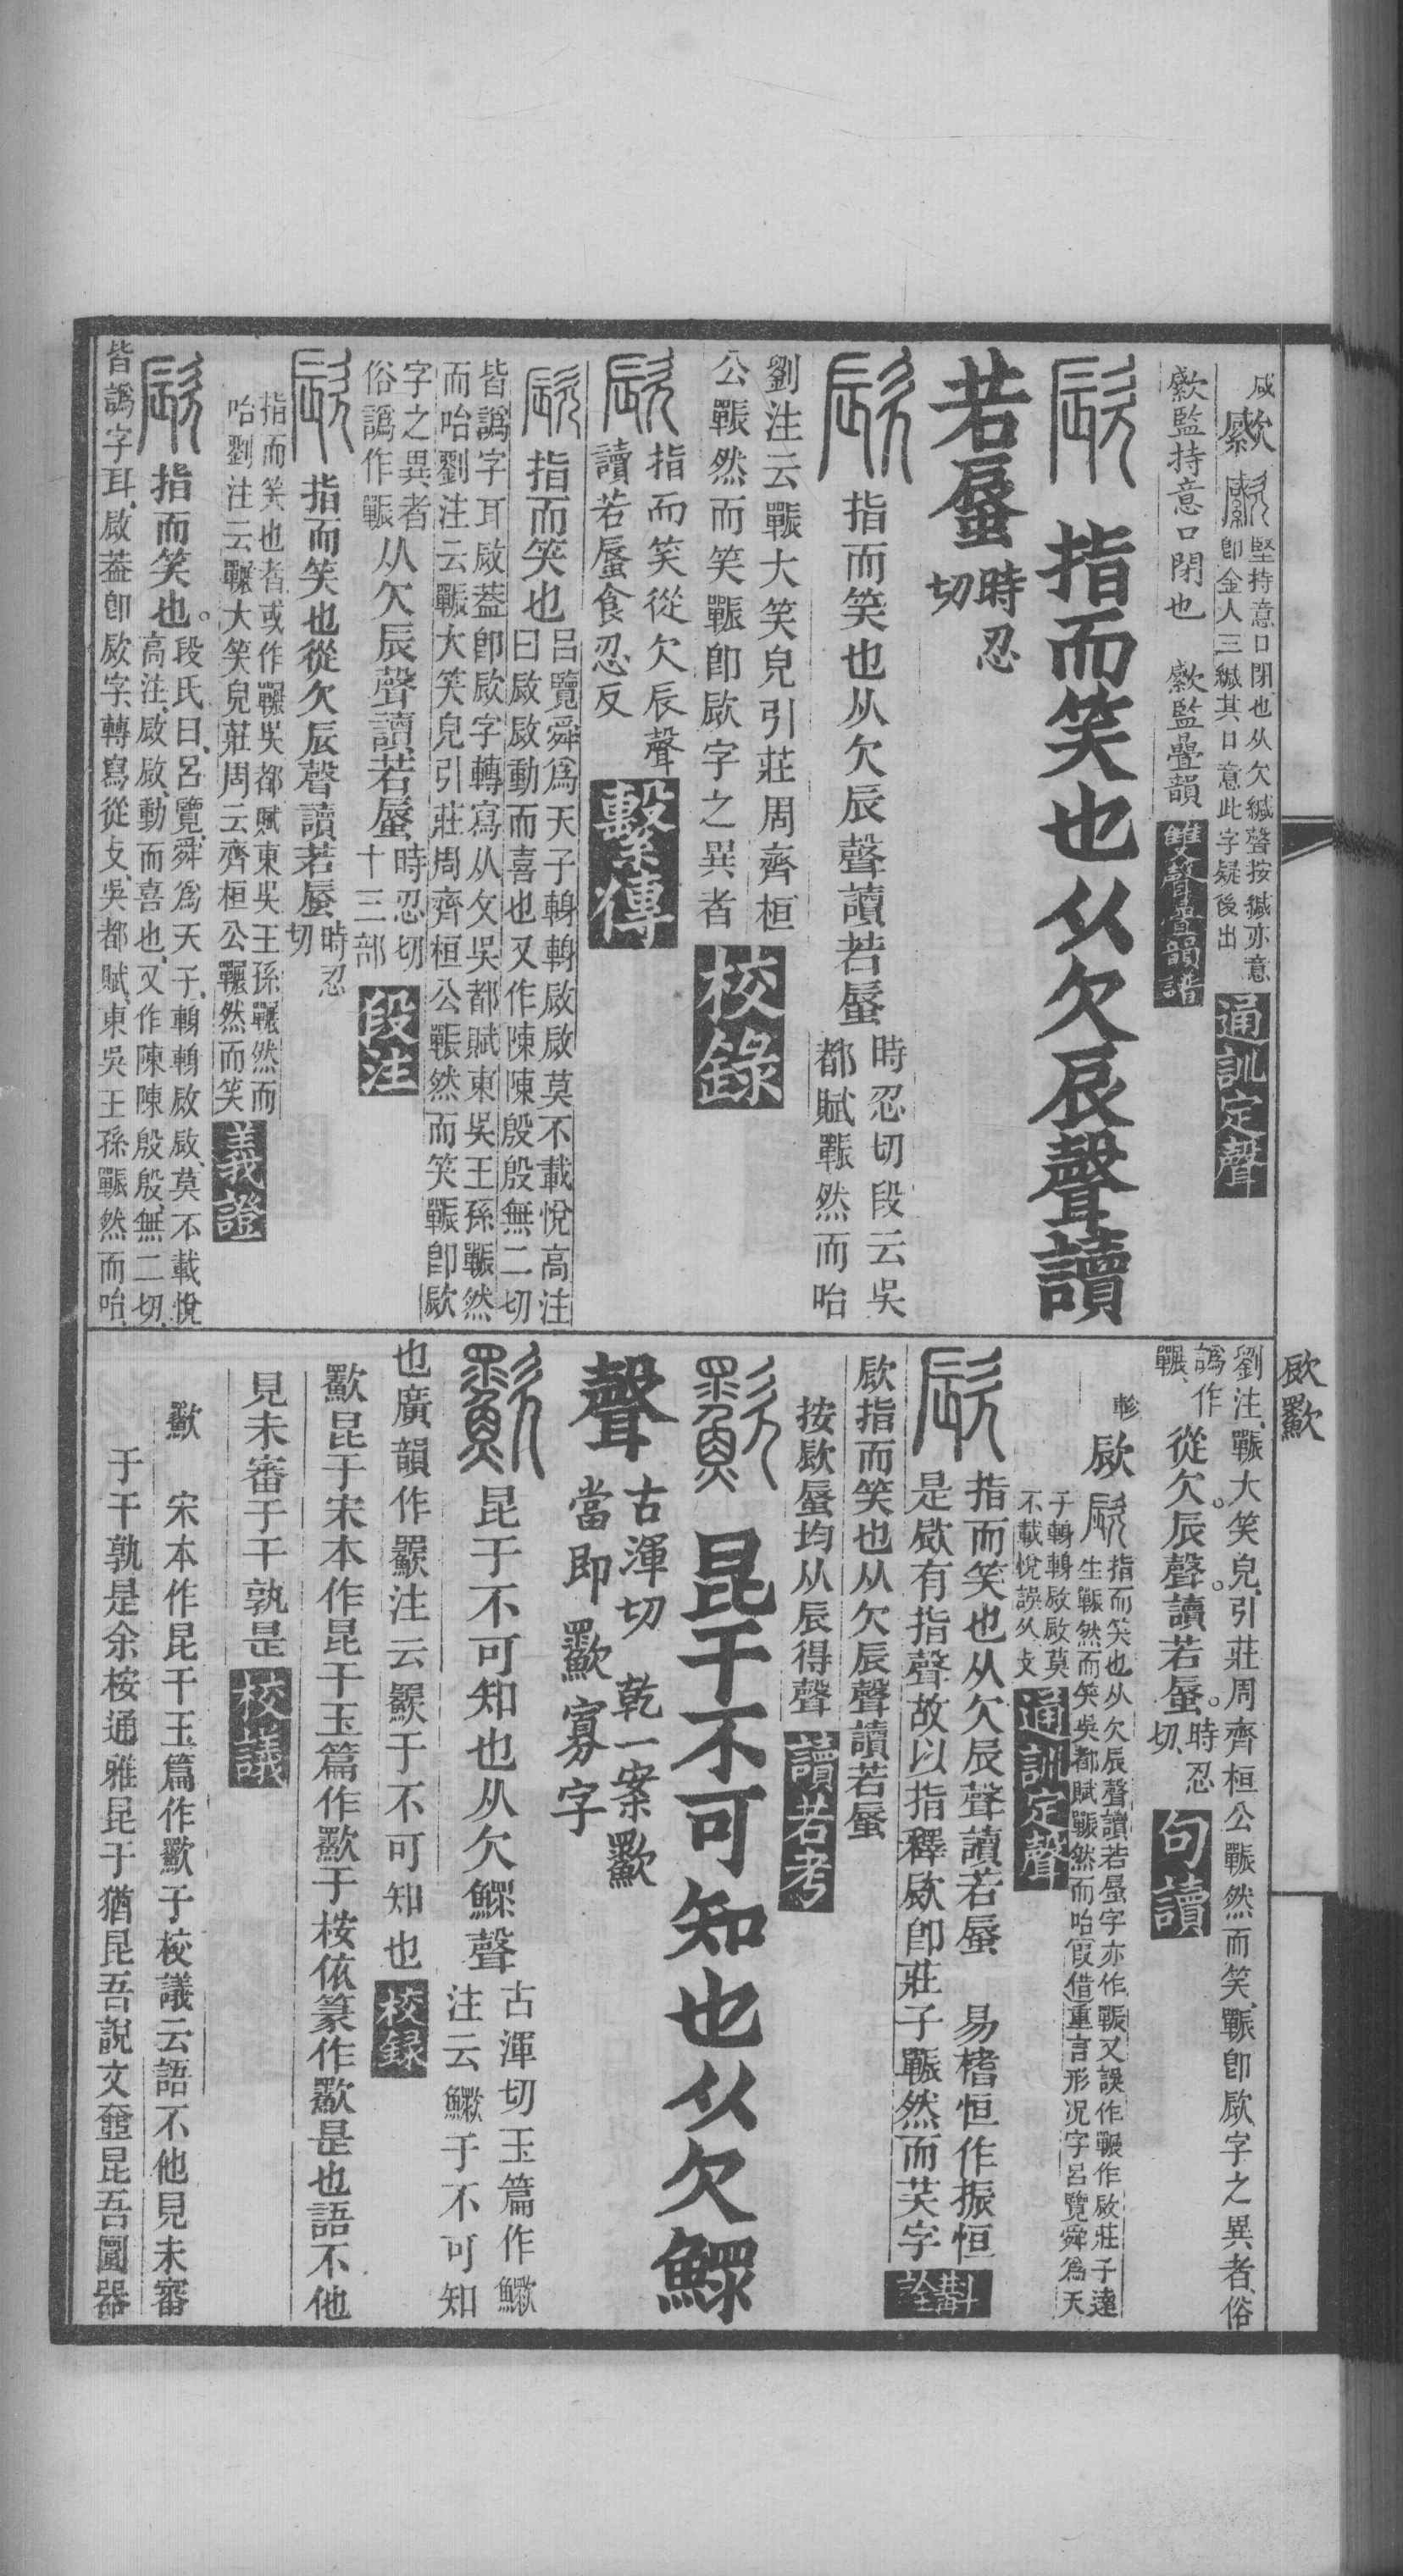 咸 𣤶 堅持意口閉也从欠緘聲按緘亦意
卽金人三緘其口意此字疑後出 通訓定聲
監持意口閉也
監疊韻 雙聲疊韻譜
指而笑也从欠辰聲讀
若蜃 時忍
切
指而笑也从欠辰聲讀若蜃 時忍切段云吳
都賦囅然而咍
劉注云囅大笑皃引莊周齊桓
公囅然而笑囅卽欼字之異者 校錄
指而笑從欠辰聲
讀若蜃食忍反 繫傳
指而笑也 呂覽舜爲天子轓轓啟啟莫不載悅高注
曰啟啟動而喜也又作陳陳殷殷無二切
皆譌字耳啟葢卽欼字轉寫从攵吳都賦東吳王孫囅然
而咍劉注云囅大笑皃引莊周齊桓公囅然而笑囅卽欼
字之異者
俗譌作囅 从欠辰聲讀若蜃 時忍切
十三部 段注
指而笑也從欠辰聲讀若蜃 時忍
切
指而笑也者或作囅吳都賦東吳王孫囅然而
咍劉注云囅大笑皃莊周云齊桓公囅然而笑 義證
指而笑也。 段氏曰、呂覽、舜爲天子、轓轓啟啟、莫不載悅
高注、啟啟、動而喜也、又作陳陳殷殷、無二切、
皆譌字耳、啟葢卽欼字、轉寫從攴、吳都賦、東吳王孫囅然而咍、
劉注、囅大笑皃、引莊周齊桓公囅然而笑、囅卽欼字之異者、俗
譌作
囅、 從欠。辰聲。讀若蜃。 時忍
切、 句讀
指而笑也从欠辰聲讀若蜃字亦作囅又誤作囅作啟莊子達
生囅然而笑吳都賦囅然而咍叚借重言形況字呂覽舜爲天
子轓轓啟啟莫
不載悅誤从攴 通訓定聲
指而笑也从欠辰聲讀若蜃 易榰恒作振恒
是欼有指聲故以指釋欼卽莊子囅然而笑字 詮斠
欼指而笑也从欠辰聲讀若蜃
按欼蜃均从辰得聲 讀若考
昆干不可知也从欠鰥
聲 古渾切 乾一案歠
當即歠寡字
昆于不可知也从欠鰥聲 古渾切玉篇作
注云 于不可知
也廣韻作 注云 于不可知也 校録
歠昆于宋本作昆干玉篇作歠于桉依篆作歠是也語不他
見未審于干孰是 校議
歠 宋本作昆干玉篇作歠子校議云語不他見未審
于干孰是余桉通雅昆于猶昆吾說文壺昆吾圜器